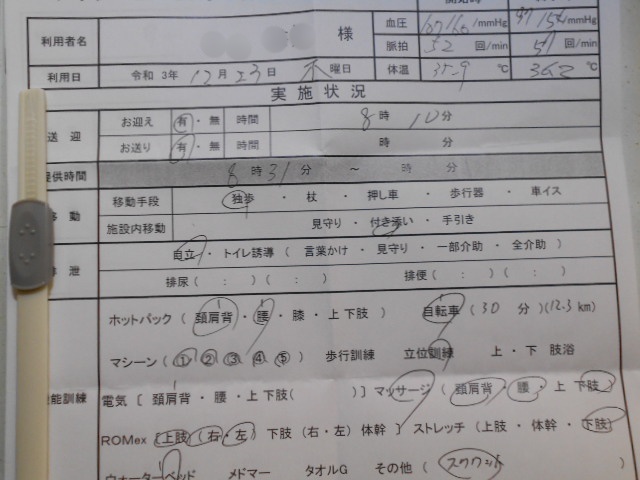 利用者名 様 血圧 107/60/mmHg 97/54/mmHg
脈拍 52 回/min 51 回/min
利用日 令和 3年 12月 23日 木 曜日 体温 35.9 ℃ 36.2 ℃
実施状況
送迎 お迎え 有・無 時間 8 時 10 分
お送り 有・無 時間 時 分
提供時間 8 時 31 分 ～ 時 分
移動 移動手段 独歩 ・ 杖 ・ 押し車 ・ 歩行器 ・ 車イス
施設内移動 見守り ・ 付き添い ・ 手引き
自立 ・ トイレ誘導 （ 言葉かけ ・ 見守り ・ 一部介助 ・ 全介助 ）
排尿（ ： ）（ ： ） 排便（ ： ）（ ： ）
ホットパック（ 頚肩背 ・ 腰 ・ 膝 ・ 上 下肢 ） 自転車（ 30 分 ）（12.3 km）
マシーン（ ① ② ③ ④ ⑤ ） 歩行訓練 立位訓練 上 ・ 下 肢浴
機能訓練 電気〔 頚肩背 ・ 腰 ・ 上下肢（ ）〕 マッサージ（ 頚肩背 ・ 腰 ・ 上 下肢 ）
ROMex〔 上肢（右・左） 下肢（右・左） 体幹 〕 ストレッチ（上肢 ・ 体幹 ・ 下肢）
ウォーターベッド メドマー タオルG その他（ スクワット ）